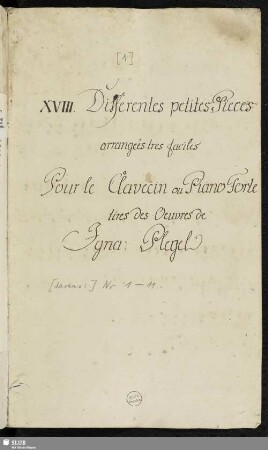 [1]
XVIII. Differentes petites Pieces
arrangeés tres faciles
Pour le Clavecin ou Piano Forte
tires des Oeuvres de
Igna: Plegel
[daraus:] Nr 1-11.
SLUB